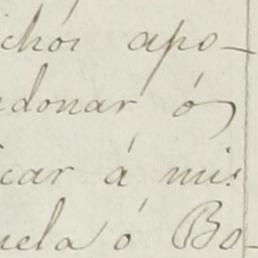 chos apo-
donar ó
car á mis
uela ó Bo-